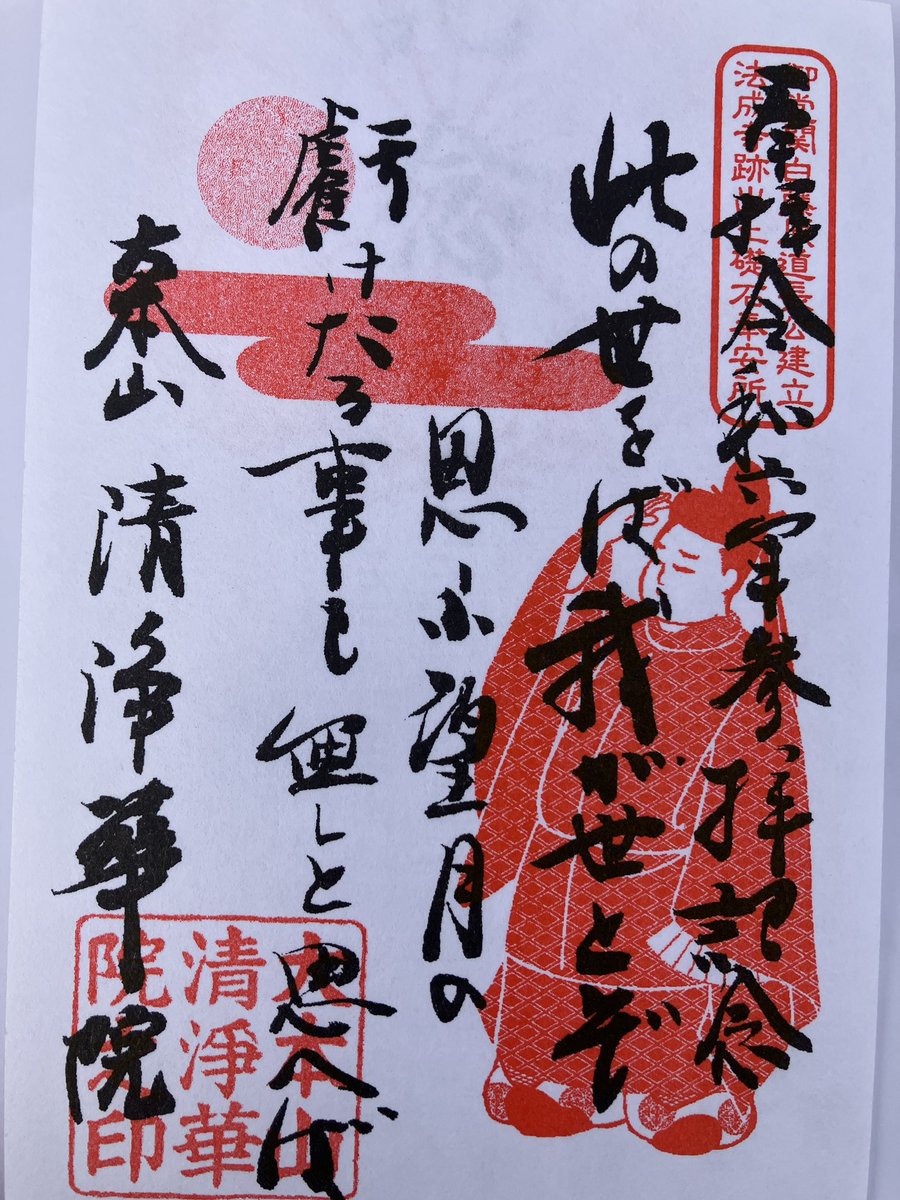 奉拝 令和六年参拝記念
御堂関白藤原道長公建立
法成寺跡出土礎石奉安所
此の世をば我が世とぞ
思ふ望月の
虧けたる事も無しと思へば
大本山 清浄華院
大本山
清淨華
院之印